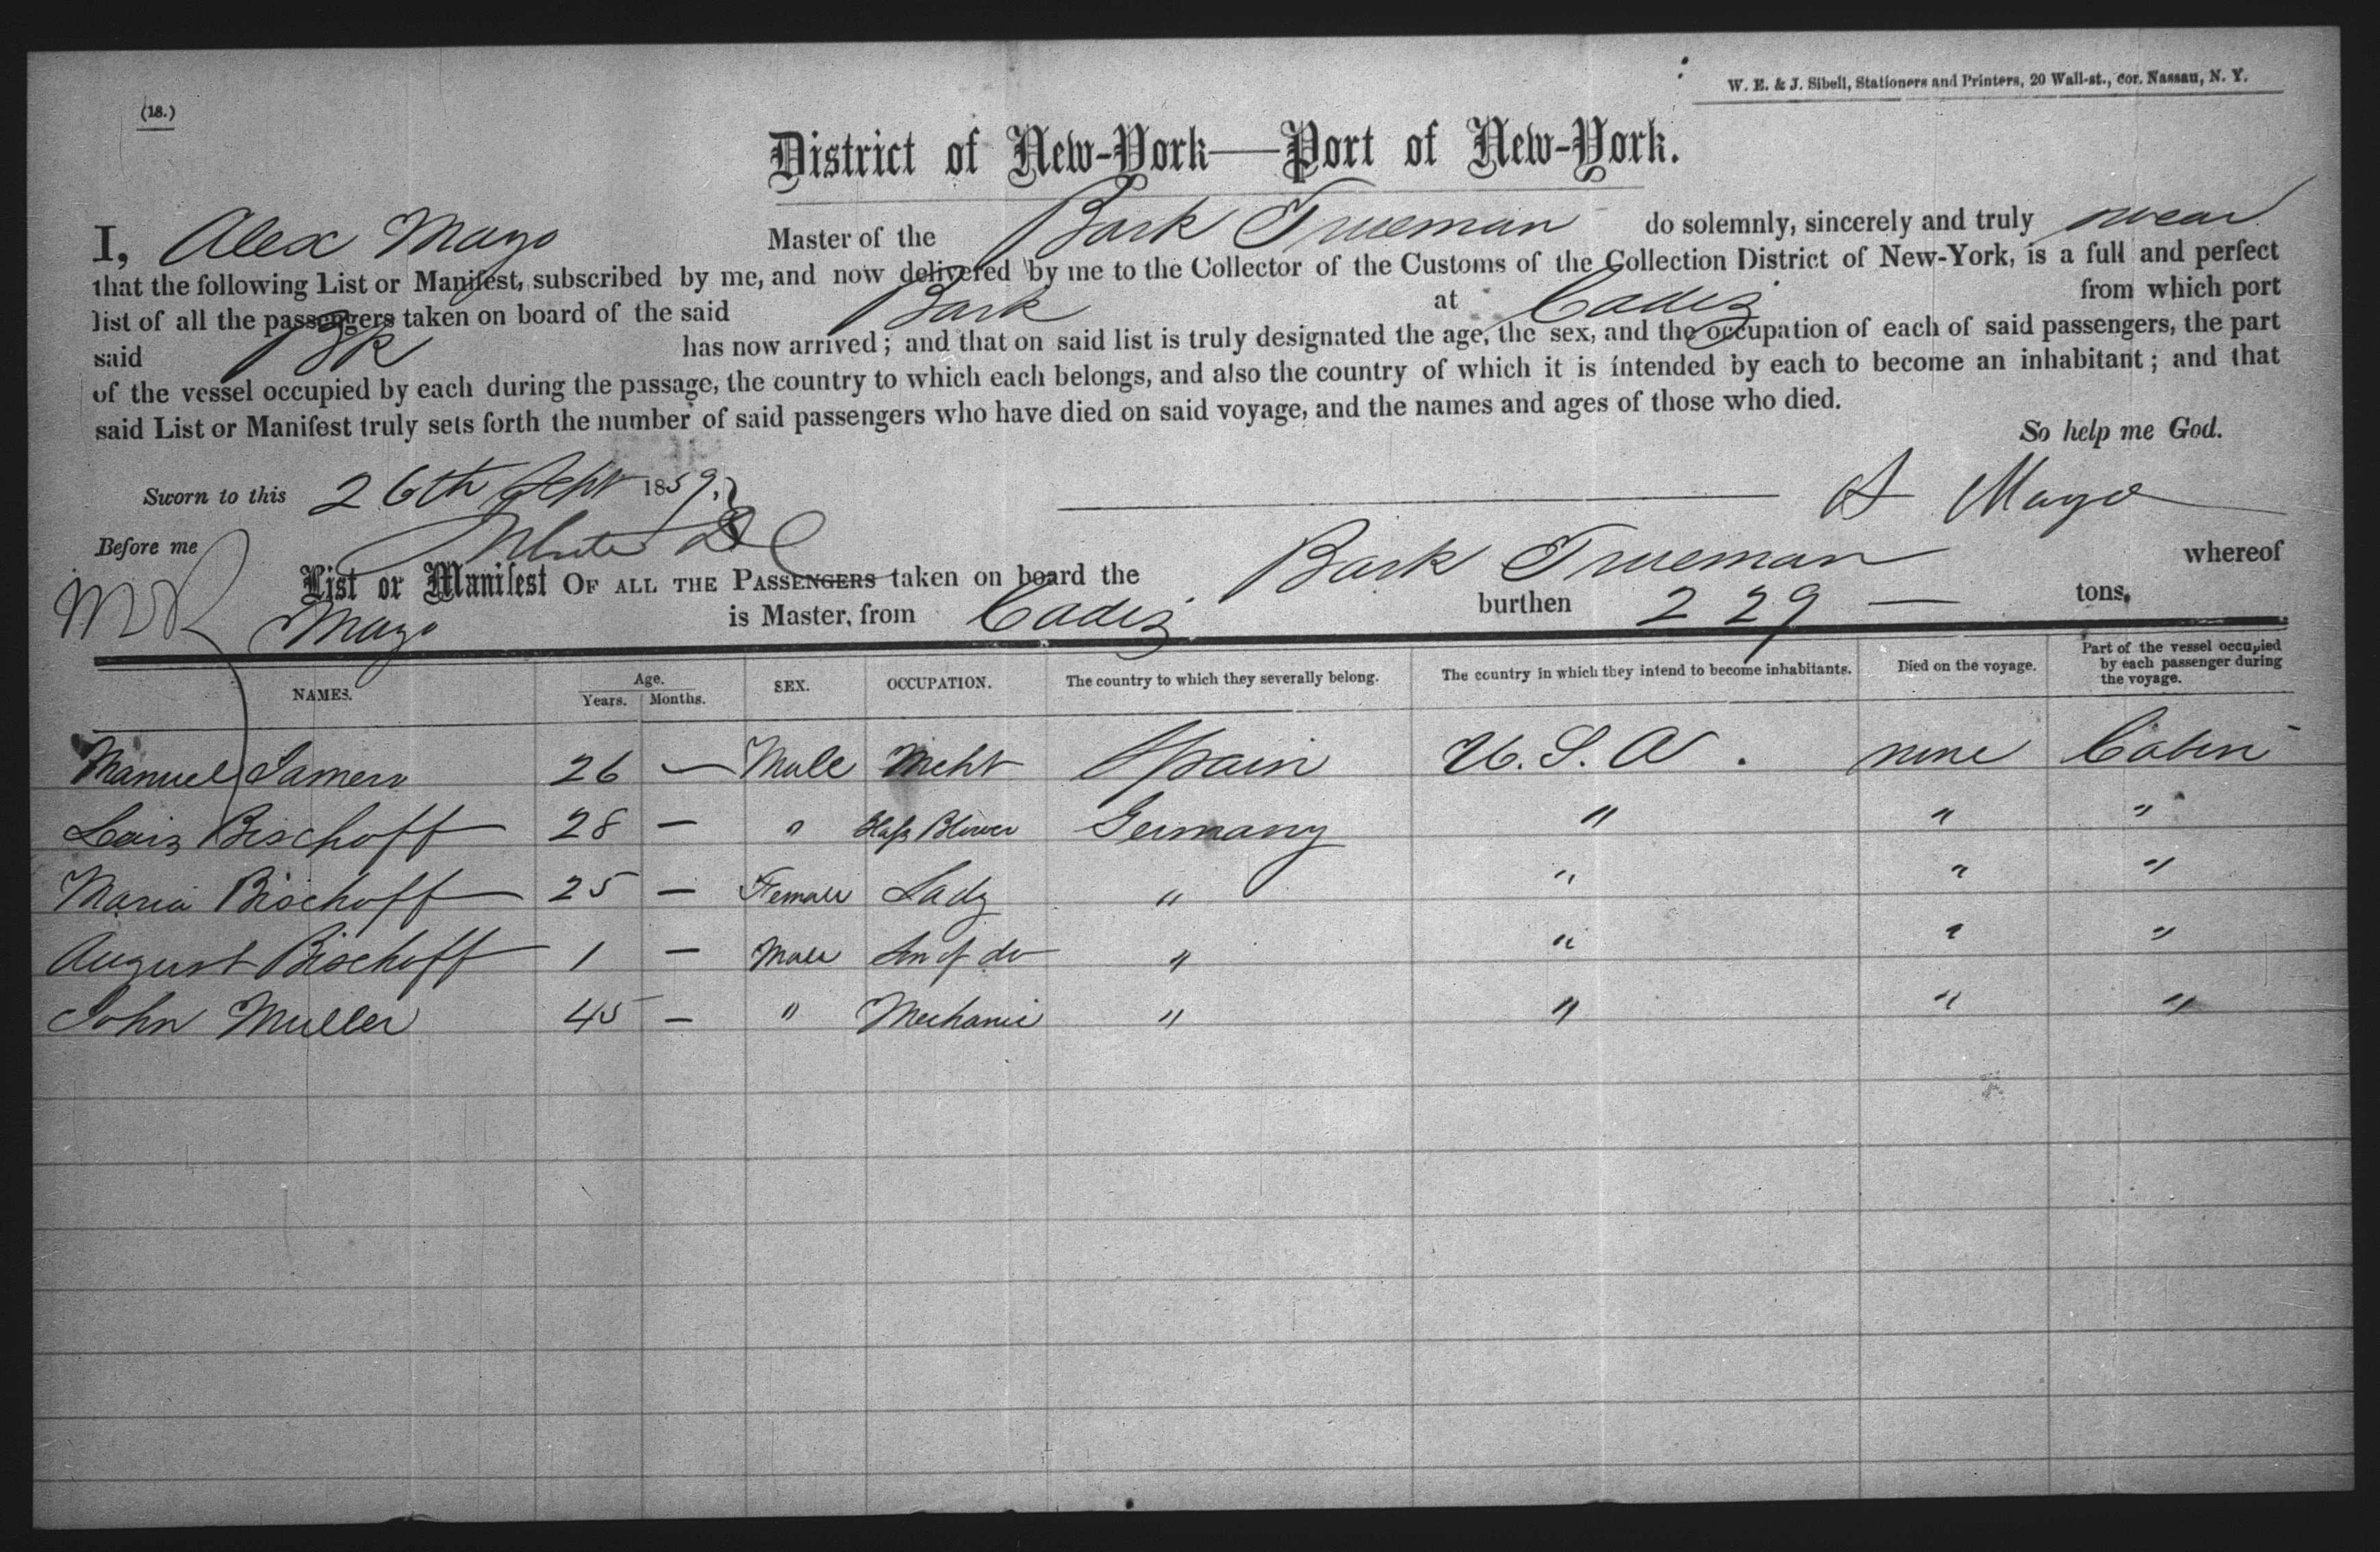 (18.)
W. E. & J. Sibell, Stationers and Printers, 20 Wall-st., cor. Nassau, N. Y.
District of New-York—Port of New-York.
I, Alex Mayo Master of the Bark Trueman do solemnly, sincerely and truly swear
that the following List or Manifest, subscribed by me, and now delivered by me to the Collector of the Customs of the Collection District of New-York, is a full and perfect
list of all the passengers taken on board of the said Bark at Cadiz from which port
said Bk has now arrived; and that on said list is truly designated the age, the sex, and the occupation of each of said passengers, the part
of the vessel occupied by each during the passage, the country to which each belongs, and also the country of which it is intended by each to become an inhabitant; and that
said List or Manifest truly sets forth the number of said passengers who have died on said voyage, and the names and ages of those who died.
So help me God.
Sworn to this 26th Sept 1859. A Mayo
Before me White D C
List or Manifest OF ALL THE PASSENGERS taken on board the Bark Trueman whereof
MR Mayo is Master, from Cadiz burthen 229 — tons.
NAMES. Age. Years. Months. SEX. OCCUPATION. The country to which they severally belong. The country in which they intend to become inhabitants. Died on the voyage. Part of the vessel occupied by each passenger during the voyage.
Manuel 26 — Male Mcht Spain U.S.A. none Cabin
Bischoff 28 — " Glass Blower Germany " " "
Maria Bischoff 25 — Female Lady " " " "
August Bischoff 1 — Male Son of do " " " "
John Muller 45 — " Mechanic " " " "